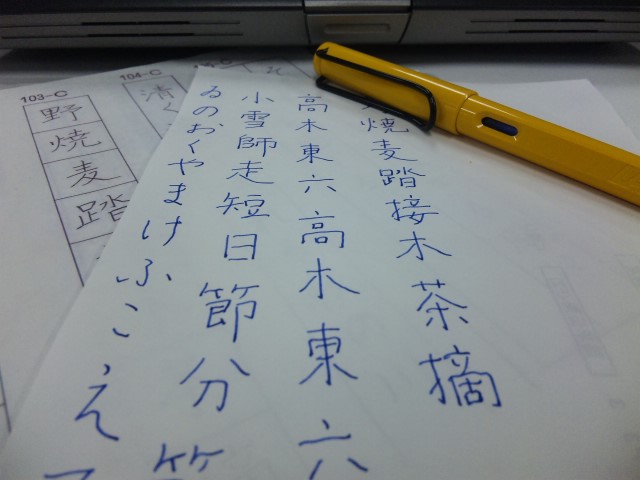 焼麦踏接木茶摘
高木東六高木東六
小雪師走短日節分
るのおくやまけふこえて
104-C
清く
103-C
野焼麦踏